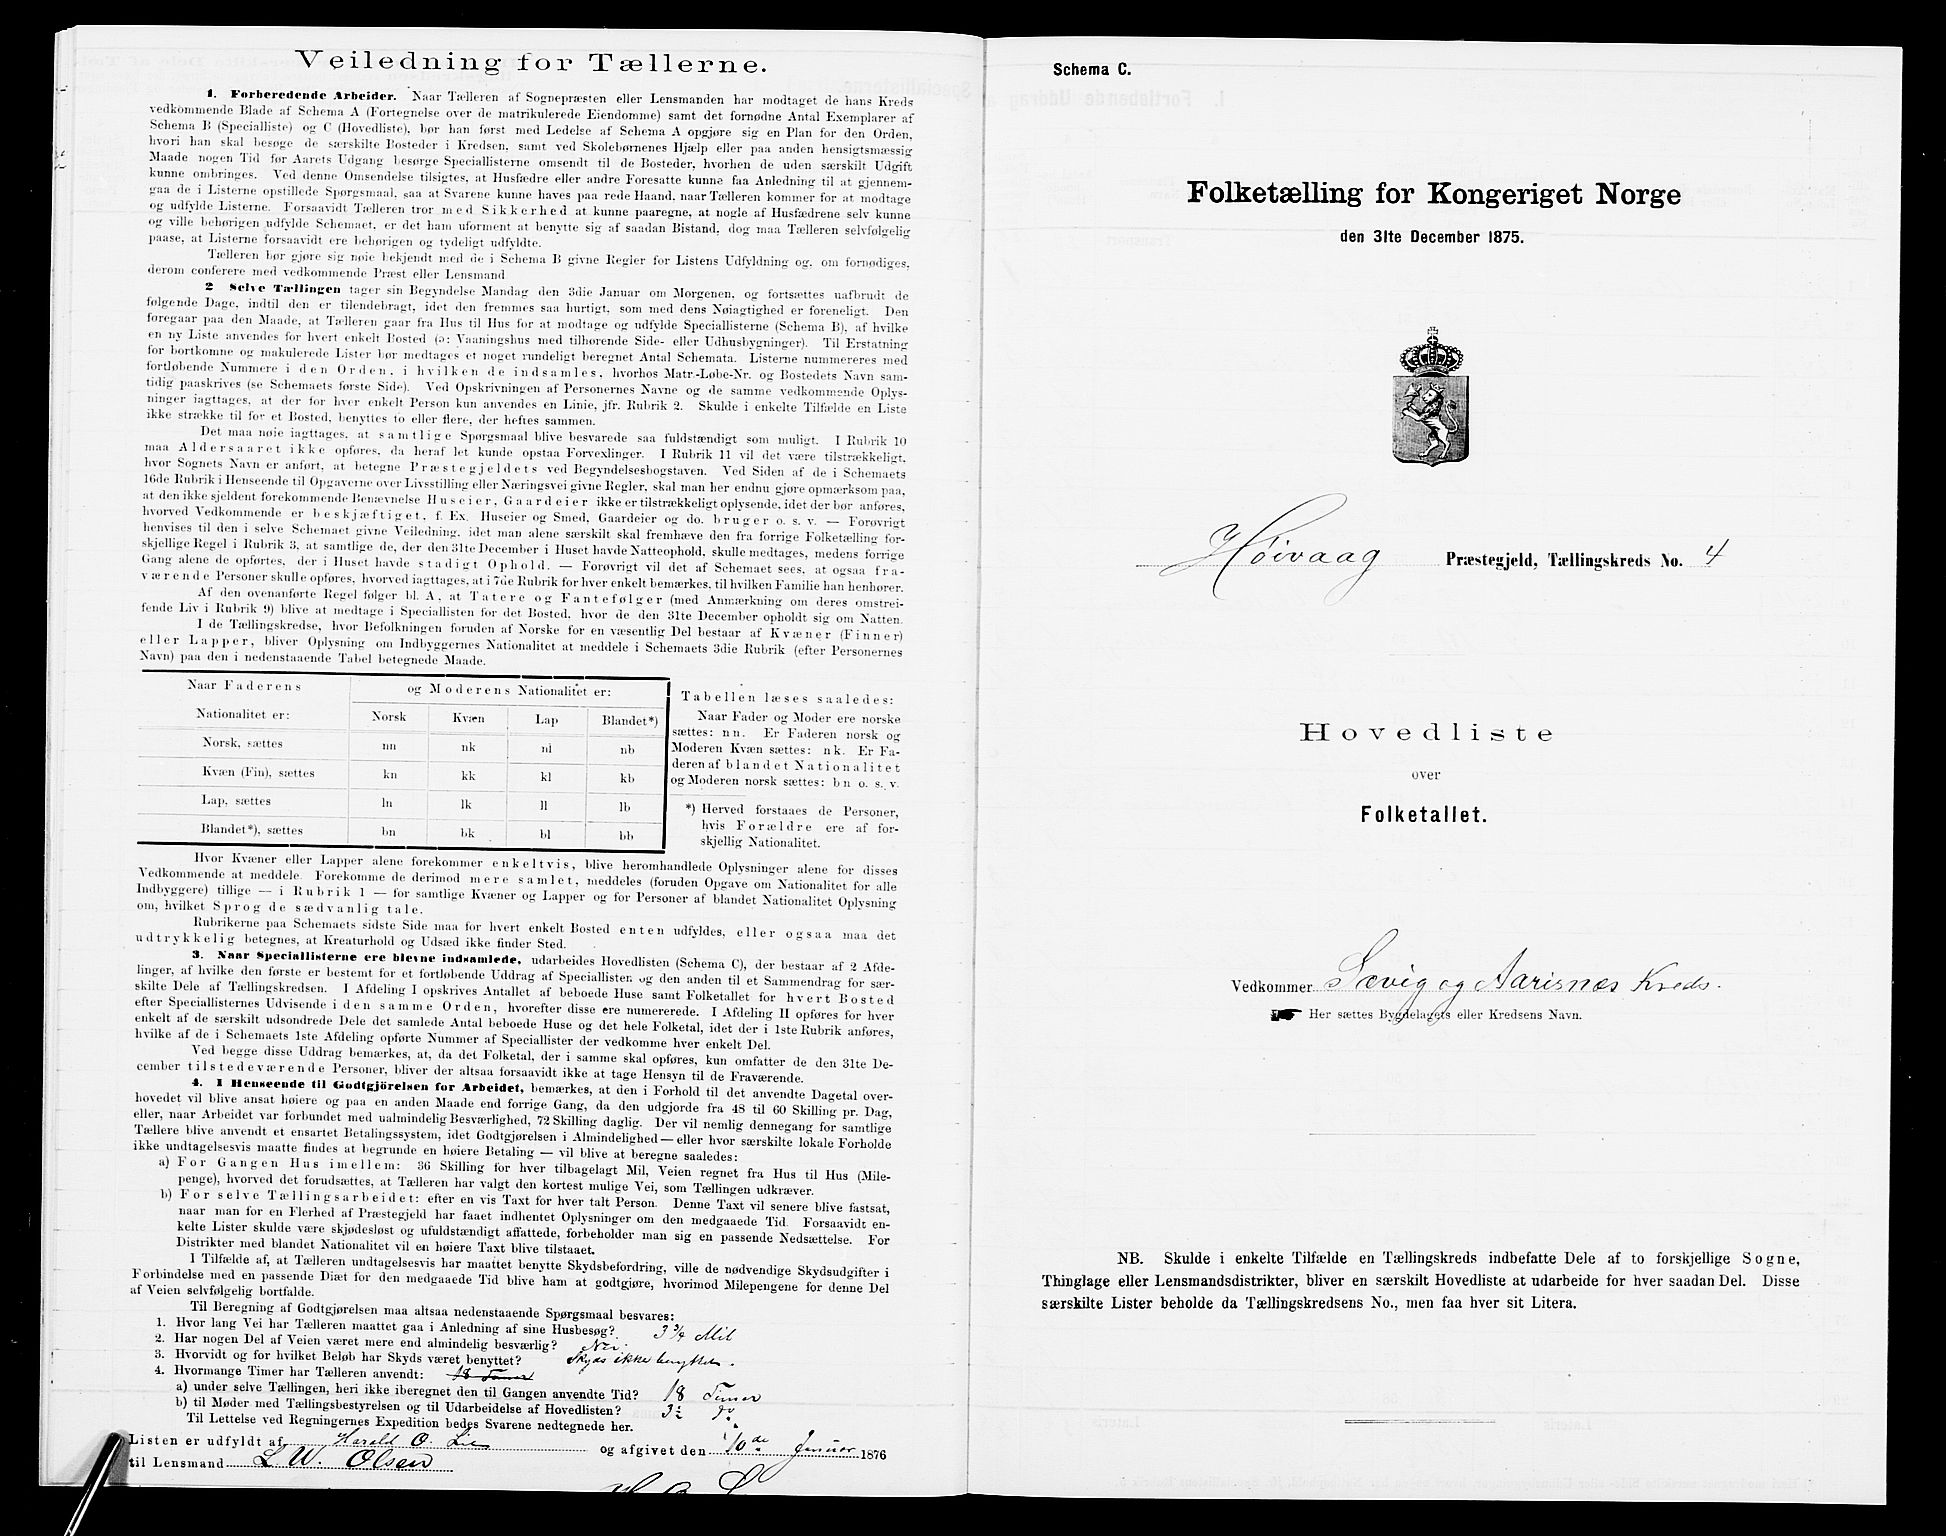 Veiledning for Tællerne.
1. Forberedende Arbeider. Naar Tælleren af Sognepræsten eller Lensmanden har modtaget de hans Kreds
vedkommende Blade af Schema A (Fortegnelse over de matrikulerede Eiendomme) samt det fornødne Antal Exemplarer af
Schema B (Specialliste) og C (Hovedliste), bør han først med Ledelse af Schema A opgjøre sig en Plan for den Orden,
hvori han skal besøge de særskilte Bosteder i Kredsen, samt ved Skolebørnenes Hjælp eller paa anden hensigtsmæssig
Maade nogen Tid før Aarets Udgang besørge Speciallisterne omsendt til de Bosteder, hvorhen de uden særskilt Udgift
kunne ombringes. Ved denne Omsendelse tilsigtes, at Husfædre eller andre Foresatte kunne faa Anledning til at gjennem-
gaa de i Listerne opstillede Spørgsmaal, saa at Svarene kunne haves paa rede Haand, naar Tælleren kommer for at modtage
og udfylde Listerne. Forsaavidt Tælleren tror med Sikkerhed at kunne paaregne, at nogle af Husfædrene selv kunne
og ville behørigen udfylde Schemaet, er det ham uforment at benytte sig af saadan Bistand, dog maa Tælleren selvfølgelig
paase, at Listerne forsaavidt ere behørigen og tydeligt udfyldte.
Tælleren bør gjøre sig nøie bekjendt med de i Schema B givne Regler for Listens Udfyldning og, om fornødiges,
derom conferere med vedkommende Præst eller Lensmand
2 Selve Tællingen tager sin Begyndelse Mandag den 3die Januar om Morgenen, og fortsættes uafbrudt de
følgende Dage, indtil den er tilendebragt, idet den fremmes saa hurtigt, som med dens Nøiagtighed er foreneligt. Den
foregaar paa den Maade, at Tælleren gaar fra Hus til Hus for at modtage og udfylde Speciallisterne (Schema B), af hvilke
en ny Liste anvendes for hvert enkelt Bosted (ɔ: Vaaningshus med tilhørende Side- eller Udhusbygninger). Til Erstatning
for bortkomne og makulerede Lister bør medtages et noget rundeligt beregnet Antal Schemata. Listerne nummereres med
fortløbende Nummere i den Orden, i hvilken de indsamles, hvorhos Matr.-Løbe-Nr. og Bostedets Navn sam-
tidig paaskrives (se Schemaets første Side). Ved Opskrivningen af Personernes Navne og de samme vedkommende Oplys-
ninger iagttages, at der for hver enkelt Person kun anvendes en Linie, jfr. Rubrik 2. Skulde i enkelte Tilfælde en Liste
ikke strække til for et Bosted, benyttes to eller flere, der heftes sammen.
Det maa nøie iagttages, at samtlige Spørgsmaal blive besvarede saa fuldstændigt som muligt. I Rubrik 10
maa Aldersaaret ikke opføres, da heraf let kunde opstaa Forvexlinger. I Rubrik 11 vil det være tilstrækkeligt,
hvor Sognets Navn er anført, at betegne Præstegjeldets ved Begyndelsesbogstaven. Ved Siden af de i Schemaets
16de Rubrik i Henseende til Opgaverne over Livsstilling eller Næringsvei givne Regler, skal man her endnu gjøre opmærksom paa,
at den ikke sjeldent forekommende Benævnelse Huseier, Gaardeier ikke er tilstrækkeligt oplysende, idet der bør anføres,
hvorved Vedkommende er beskjæftiget, f. Ex. Huseier og Smed, Gaardeier og do. bruger o. s. v. — Forøvrigt
henvises til den i selve Schemaet givne Veiledning, idet man alene særskilt skal fremhæve den fra forrige Folketælling for-
skjellige Regel i Rubrik 3, at samtlige de, der den 31te December i Huset havde Natteophold, skulle medtages, medens forrige
Gang alene de opførtes, der i Huset havde stadigt Ophold. — Forøvrigt vil det af Schemaet sees, at ogsaa fra-
værende Personer skulle opføres, hvorved iagttages, at i 7de Rubrik for hver enkelt bemærkes, til hvilken Familie han henhører.
Af den ovenanførte Regel følger bl. A, at Tatere og Fantefølger (med Anmærkning om deres omstrei-
fende Liv i Rubrik 9) blive at medtage i Speciallisten for det Bosted, hvor de den 31te December opholdt sig om Natten.
I de Tællingskredse, hvor Befolkningen foruden af Norske for en væsentlig Del bestaar af Kvæner (Finner)
eller Lapper, bliver Oplysning om Indbyggernes Nationalitet at meddele i Schemaets 3die Rubrik (efter Personernes
Navn) paa den i nedenstaaende Tabel betegnede Maade.
Naar Faderens og Moderens Nationalitet er:
Nationalitet er: Norsk Kvæn Lap Blandet*)
Norsk, sættes nn nk nl nb
Kvæn (Fin), sættes kn kk kl kb
Lap, sættes ln lk ll lb
Blandet*), sættes bn bk bl bb
Tabellen læses saaledes:
Naar Fader og Moder ere norske
sættes: nn. Er Faderen norsk og
Moderen Kvæn sættes: nk. Er Fa-
deren af blandet Nationalitet
og Moderen norsk sættes: bn o. s. v.
*) Herved forstaaes de Personer,
hvis Forældre ere af for-
skjellig Nationalitet.
Hvor Kvæner eller Lapper alene forekommer enkeltvis, blive heromhandlede Oplysninger alene for disses
Vedkommende at meddele. Forekomme de derimod mere samlet, meddeles (foruden Opgave om Nationalitet for alle
Indbyggere) tillige — i Rubrik 1 — for samtlige Kvæner og Lapper og for Personer af blandet Nationalitet Oplysning
om, hvilket Sprog de sædvanlig tale.
Rubrikerne paa Schemaets sidste Side maa for hvert enkelt Bosted enten udfyldes, eller ogsaa maa det
udtrykkelig betegnes, at Kreaturhold og Udsæd ikke finder Sted.
3. Naar Speciallisterne ere blevne indsamlede, udarbeides Hovedlisten (Schema C), der bestaar af 2 Afde-
linger, af hvilke den første er bestemt for et fortløbende Uddrag af Speciallisten og den anden til et Sammendrag for sær-
skilte Dele af Tællingskredsen. I Afdeling I opskrives Antallet af beboede Huse samt Folketallet for hvert Bosted
efter Speciallisternes Udvisende i den samme Orden, hvorefter disse ere numererede. I Afdeling II opføres for hver
enkelt af de særskilt udsondrede Dele det samlede Antal beboede Huse og det hele Folketal, idet der i 1ste Rubrik anføres,
hvilke af de i Schemaets 1ste Afdeling opførte Nummer af Speciallister der vedkomme hver enkelt Del.
Ved begge disse Uddrag bemærkes, at, da det Folketal, der i samme skal opføres, kun omfatter de den 31te De-
cember tilstedeværende Personer, bliver der altsaa forsaavidt ikke at tage Hensyn til de Fraværende.
4. I Henseende til Godtgjörelsen for Arbeidet, bemærkes, at den i Forhold til det anvendte Dagetal over-
hovedet vil blive ansat høiere og paa en anden Maade end forrige Gang, da den udgjorde fra 48 til 60 Skilling pr. Dag,
eller, naar Arbeidet var forbundet med ualmindelig Besværlighed, 72 Skilling daglig. Der vil nemlig dennegang for samtlige
Tællere blive anvendt et ensartet Betalingssystem, idet Godtgjørelsen i Almindelighed — eller hvor særskilte lokale Forholde
ikke undtagelsesvis maatte findes at begrunde en høiere Betaling — vil blive at beregne saaledes:
a) For Gangen Hus imellem: 36 Skilling for hver tilbagelagt Mil, Veien regnet fra Hus til Hus (Mile-
penge), hvorved det forudsættes, at Tælleren har valgt den kortest mulige Vei, som Tællingen udkræver.
b) For selve Tællingsarbeidet: efter en vis Taxt for hver talt Person. Denne Taxt vil senere blive fastsat,
naar man for en Flerhed af Præstegjeld har faaet indhentet Oplysninger om den medgaaede Tid. Forsaavidt en-
kelte Lister skulde være skjødesløst og ufuldstændigt affattede, forbeholder man sig en passende Nedsættelse. For
Distrikter med blandet Nationalitet vil en høiere Taxt blive tilstaaet.
I Tilfælde af, at Tælleren undtagelsesvis har maattet benytte Skydsbefordring, ville de nødvendige Skydsudgifter i
Forbindelse med en passende Diæt for den medgaaede Tid blive ham at godtgjøre, hvorimod Milepengene for denne Del
af Veien selvfølgelig bortfalde.
Til Beregning af Godtgjørelsen maa altsaa nedenstaaende Spørgsmaal besvares:
1. Hvor lang Vei har Tælleren maattet gaa i Anledning af sine Husbesøg? 3 3/4 Mil
2. Har nogen Del af Veien været mere end almindelig besværlig? Nei.
3. Hvorvidt og for hvilket Beløb har Skyds været benyttet? Skyds ikke benyttet.
4. Hvormange Timer har Tælleren anvendt: 18 Timer
a) under selve Tællingen, heri ikke iberegnet den til Gangen anvendte Tid? 18 Timer
b) til Møder med Tællingsbestyrelsen og til Udarbeidelse af Hovedlisten?
Til Lettelse ved Regningernes Expedition bedes Svarene nedtegnede her.
Listen er udfyldt af Harald O. Lie og afgivet den 10de Januar 1876
til Lensmand L W. Olsen
Schema C.
Folketælling for Kongeriget Norge
den 31te December 1875.
Høivaag Præstegjeld, Tællingskreds No. 4
Hovedliste
over
Folketallet.
Vedkommer Sævig og Aarisnæs Kreds.
Her sættes Bygdelagets eller Kredsens Navn.
NB. Skulde i enkelte Tilfælde en Tællingskreds indbefatte Dele af to forskjellige Sogne,
Thinglage eller Lensmandsdistrikter, bliver en særskilt Hovedliste at udarbeide for hver saadan Del. Disse
særskilte Lister beholde da Tællingskredsens No., men faa hver sit Litera.